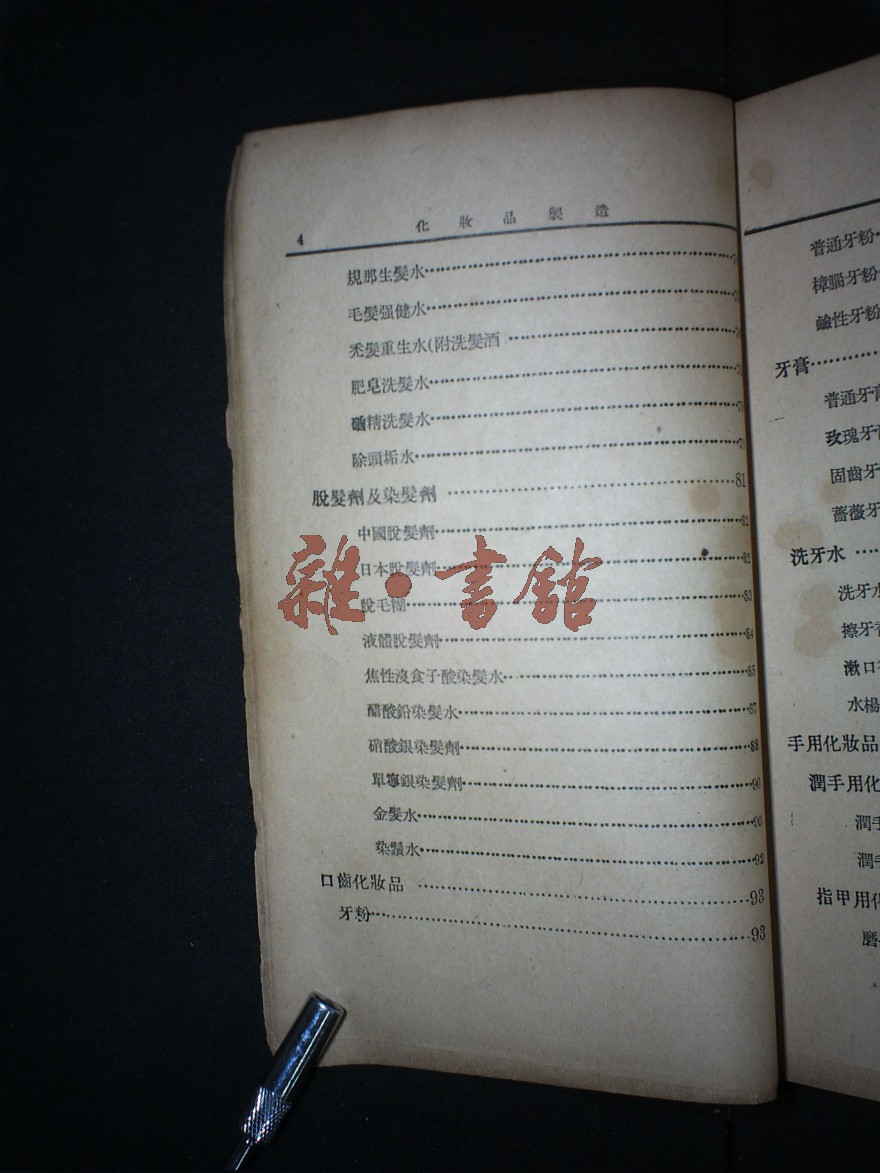 4 化妝品製造
規那生髮水
毛髮强健水
禿髮重生水(附洗髮酒
肥皂洗髮水
硇精洗髮水
除頭垢水
脫髮劑及染髮劑 81
中國脫髮劑 81
日本脫髮劑 82
脫毛糊 83
液體脫髮劑 84
焦性沒食子酸染髮水 85
醋酸鉛染髮水 87
硝酸銀染髮劑 88
單寧銀染髮劑 90
金髮水 90
染鬚水 92
口齒化妝品 93
牙粉 93
雜·書館
普通牙粉
樟腦牙粉
鹼性牙粉
牙膏
普通牙膏
玫瑰牙
固齒牙
薔薇牙
洗牙水
洗牙水
擦牙
漱口
水楊
手用化妝品
潤手用化
潤手
潤手
指甲用化
磨